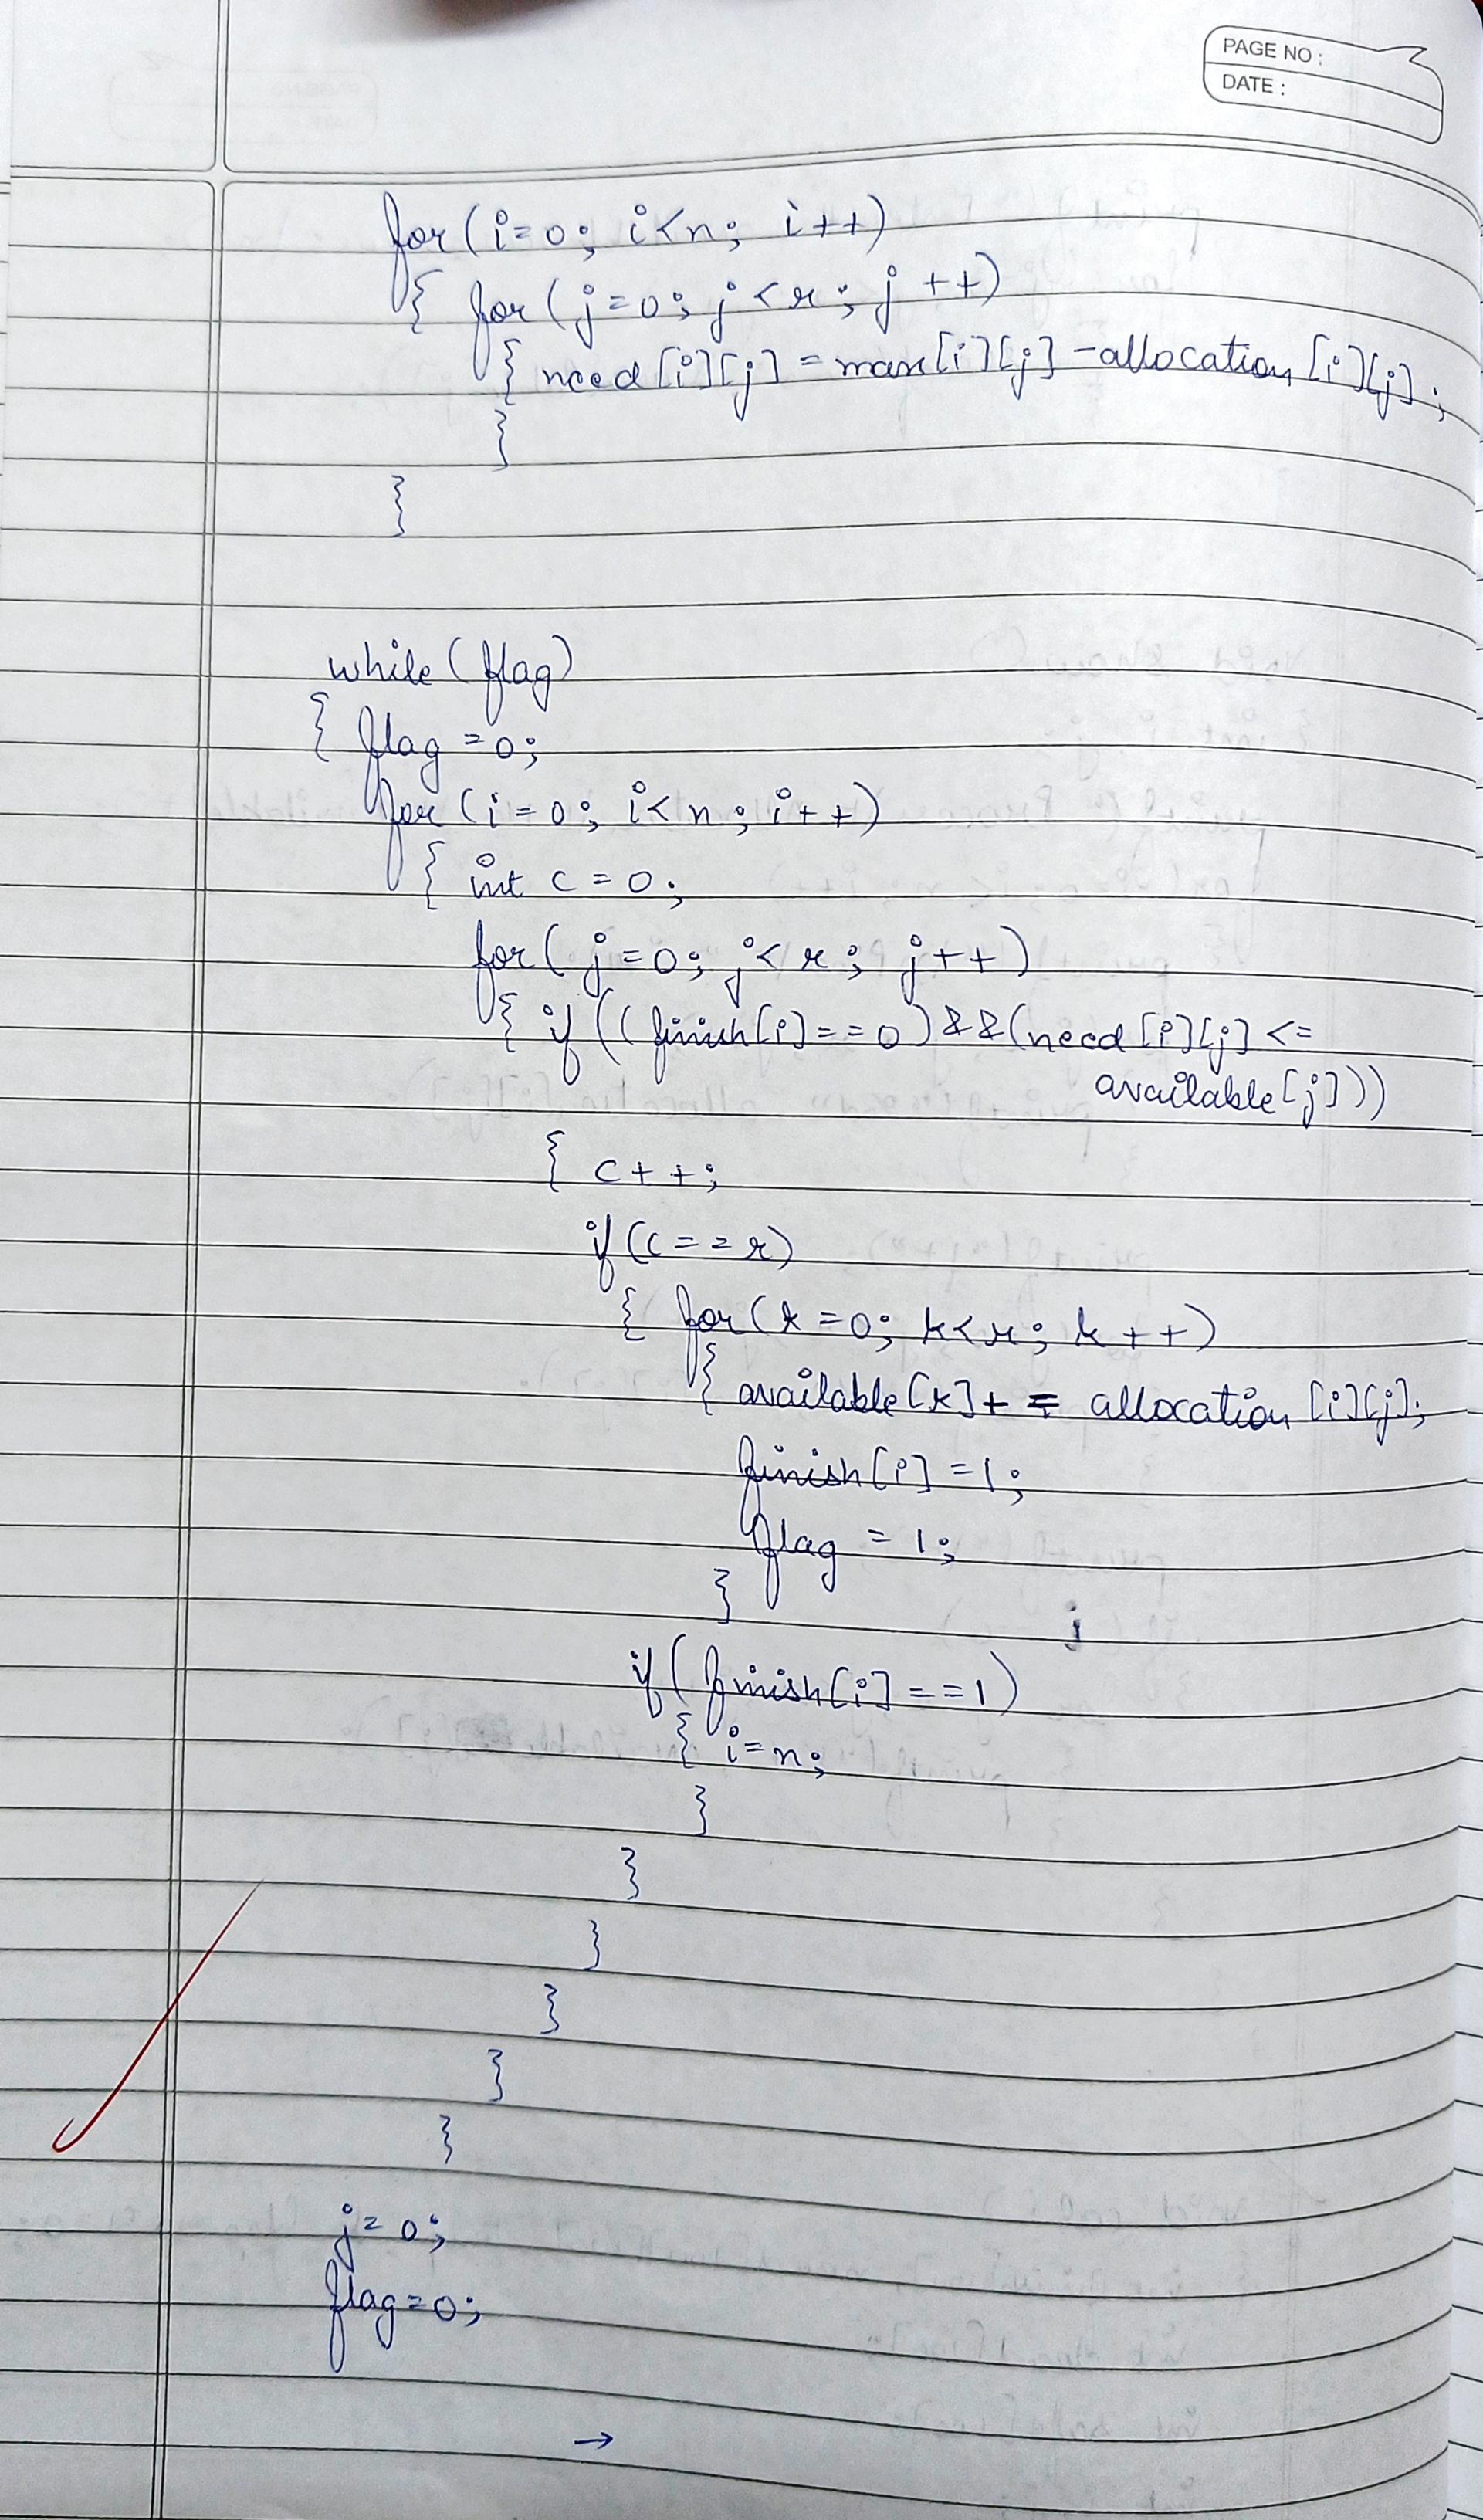 PAGE NO :
DATE :
for (i=0; i<n; i++)
{ for (j=0; j<r; j++)
{ need[i][j] = max[i][j] - allocation[i][j];
}
}
while (flag)
{ flag = 0;
for (i=0; i<n; i++)
{ int c = 0;
for (j=0; j<r; j++)
{ if ((finish[i]==0)&&(need[i][j] <=
available[j]))
{ c++;
if (c==r)
{ for (k=0; k<r; k++)
{ available[k] += allocation[i][j];
finish[i]=1;
flag = 1;
}
j
if (finish[i]==1)
{ i=n;
}
}
}
}
}
}
j=0;
flag=0;
→